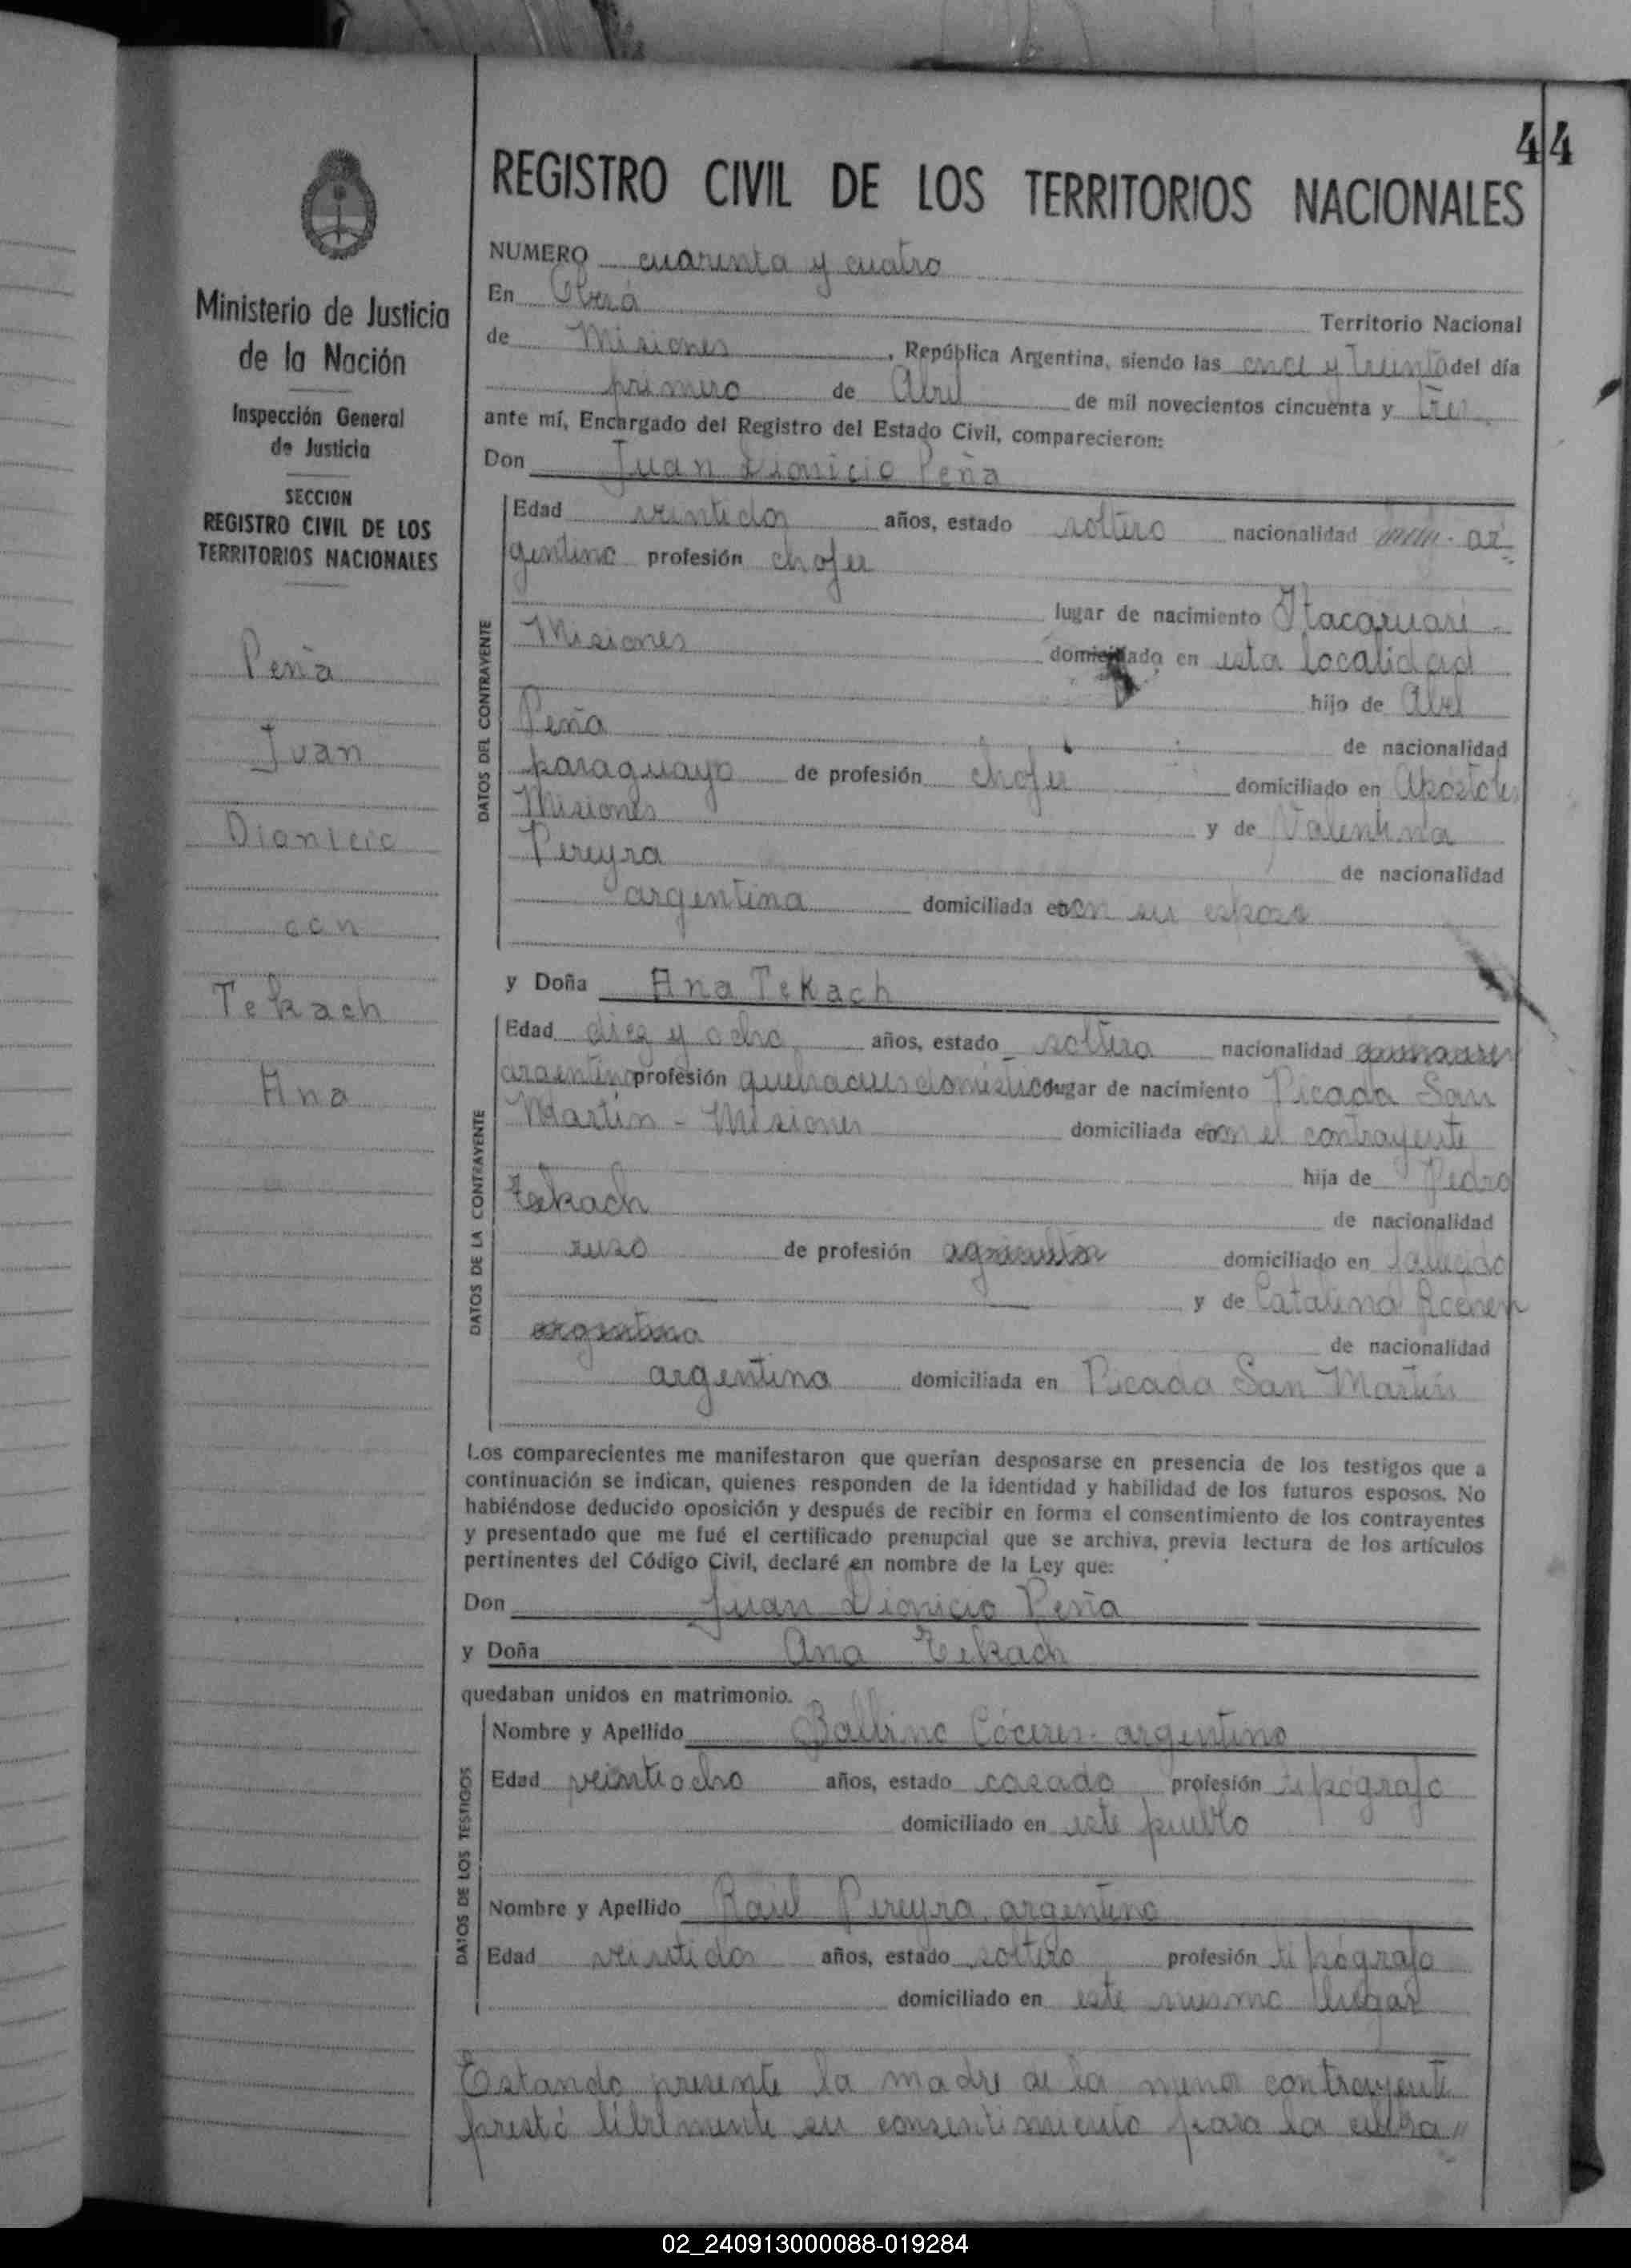 44
REGISTRO CIVIL DE LOS TERRITORIOS NACIONALES
Ministerio de Justicia
de la Nación
Inspección General
de Justicia
SECCION
REGISTRO CIVIL DE LOS
TERRITORIOS NACIONALES
Peña
Juan
Dionicio
con
Tekach
Ana
NUMERO cuarenta y cuatro
En Oberá Territorio Nacional
de Misiones, República Argentina, siendo las once y treinta del día
primero de Abril de mil novecientos cincuenta y tres
ante mí, Encargado del Registro del Estado Civil, comparecieron:
Don Juan Dionicio Peña
DATOS DEL CONTRAYENTE
Edad veintidos años, estado soltero nacionalidad ar-
gentino profesión chofer
lugar de nacimiento Itacaruaré -
Misiones domiciliado en esta localidad
hijo de Abel
Peña de nacionalidad
paraguayo de profesión chofer domiciliado en Apostoles
Misiones y de Valentina
Pereyra de nacionalidad
argentina domiciliada en con su esposo
y Doña Ana Tekach
DATOS DE LA CONTRAYENTE
Edad diez y ocho años, estado soltera nacionalidad
argentina profesión quehaceres domésticos lugar de nacimiento Picada San
Martín - Misiones domiciliada en con el contrayente
hija de Pedro
Tekach de nacionalidad
ruso de profesión agricultor domiciliado en fallecido
y de Catalina
argentina de nacionalidad
argentina domiciliada en Picada San Martín
Los comparecientes me manifestaron que querían desposarse en presencia de los testigos que a
continuación se indican, quienes responden de la identidad y habilidad de los futuros esposos. No
habiéndose deducido oposición y después de recibir en forma el consentimiento de los contrayentes
y presentado que me fué el certificado prenupcial que se archiva, previa lectura de los artículos
pertinentes del Código Civil, declaré en nombre de la Ley que:
Don Juan Dionicio Peña
y Doña Ana Tekach
quedaban unidos en matrimonio.
DATOS DE LOS TESTIGOS
Nombre y Apellido Balbino Cáceres - argentino
Edad veintiocho años, estado casado profesión tipógrafo
domiciliado en este pueblo
Nombre y Apellido Raúl Pereyra, argentino
Edad veintidos años, estado soltero profesión tipógrafo
domiciliado en este mismo lugar
Estando presente la madre de la menor contrayente
prestó libremente su consentimiento para la celebra //
02_240913000088-019284